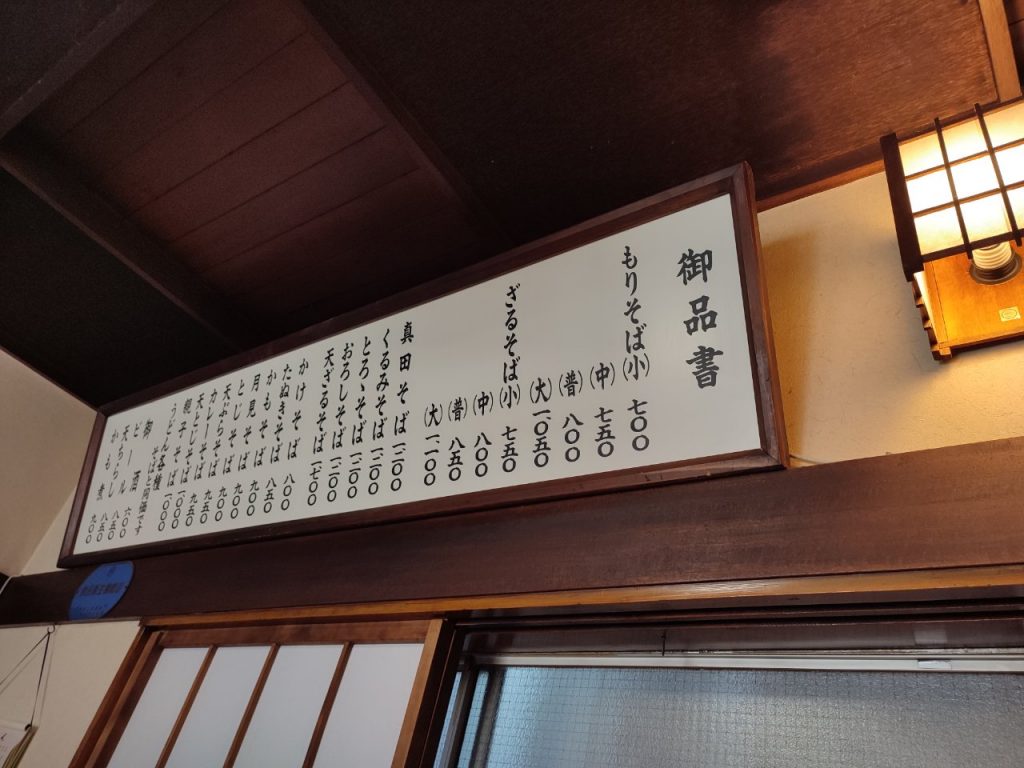 御品書
もりそば(小) 七〇〇
(中) 七五〇
(普) 八〇〇
(大) 一〇五〇
ざるそば(小) 七五〇
(中) 八〇〇
(普) 八五〇
(大) 一一〇〇
真田そば 一二〇〇
くるみそば 一二〇〇
とろゝそば 一二〇〇
おろしそば 一二〇〇
天ざるそば 一七〇〇
かけそば 八〇〇
たぬきそば 八五〇
かもそば 九〇〇
月見そば 九〇〇
とじそば 九〇〇
天ぷらそば 九五〇
カレーそば 九五〇
天とじそば
親子そば 一〇〇〇
うどん各種 そばと同価です
御酒
ビール
天ちらし
かも煮 九〇〇